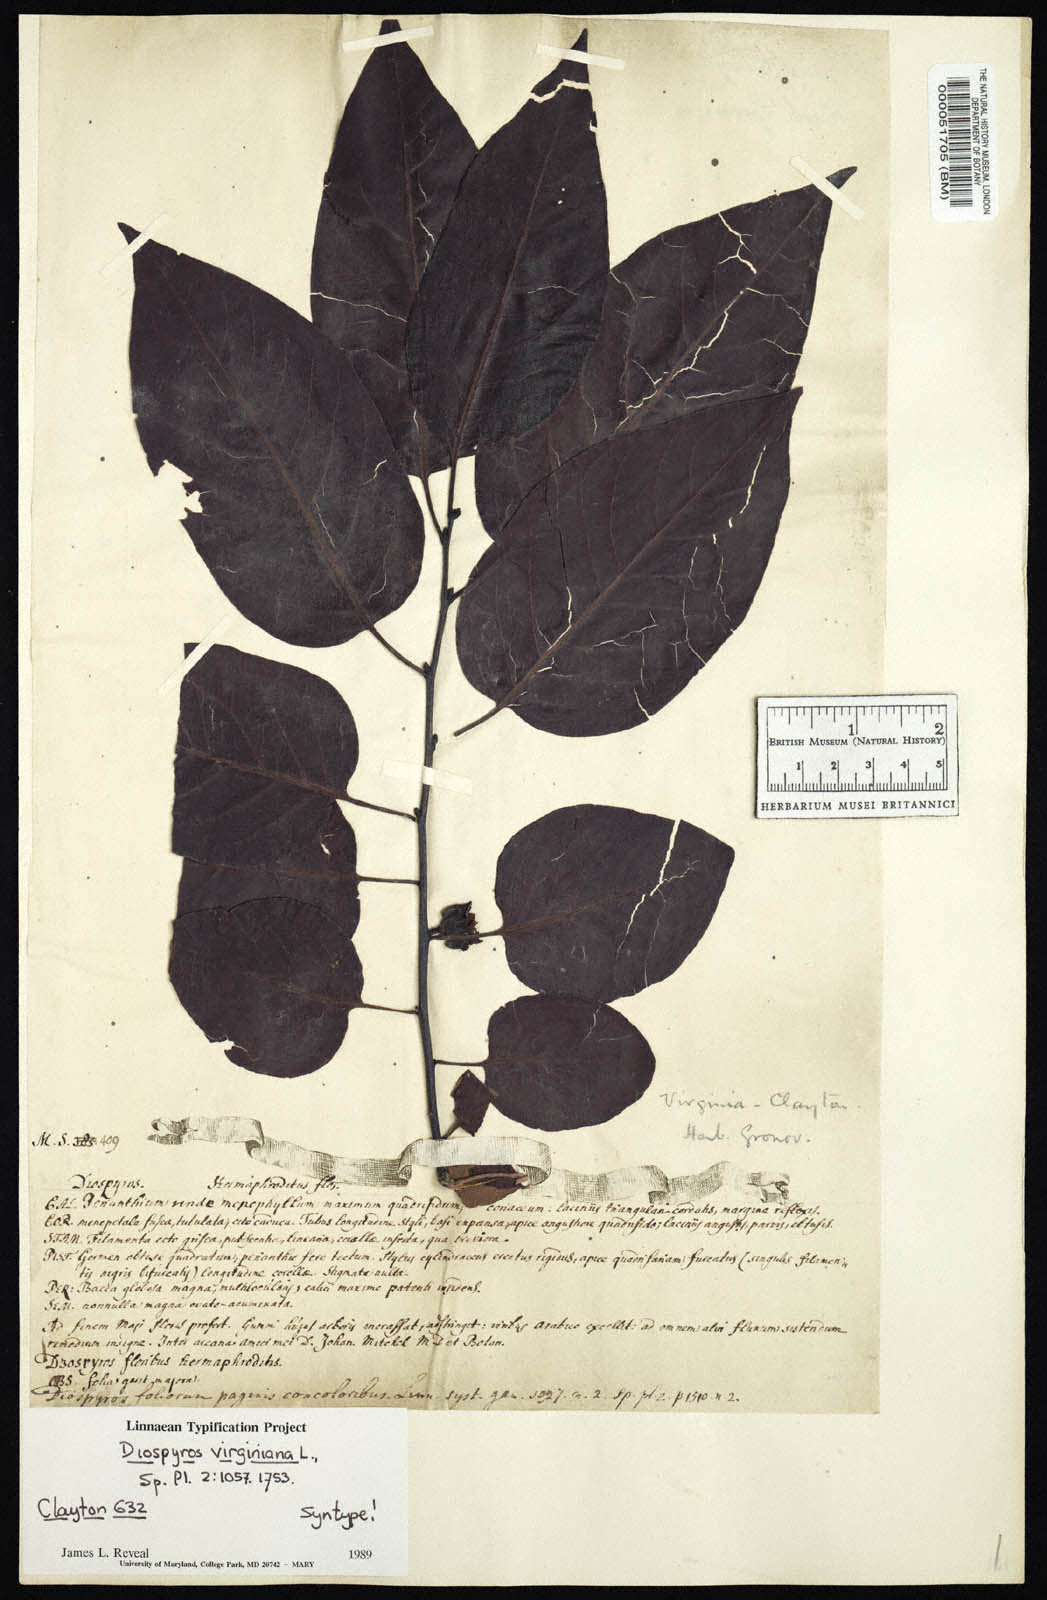 THE NATURAL HISTORY MUSEUM, LONDON
DEPARTMENT OF BOTANY
000051705 (BM)
1 2
BRITISH MUSEUM (NATURAL HISTORY)
1 2 3 4 5
HERBARIUM MUSEI BRITANNICI
Virginia - Clayton.
Herb. Gronov.
M. S. 409
Diospyros. Hermaphroditus flos.
CAL. Perianthium monophyllum maximum quadrifidum, laciniis triangulari-cordatis, margine reflexis.
COR. monopetala fusca, tubulata, cito caduca. Tubus longitudine styli, basi expansa, apice angustiore quadrifido; laciniis parvis, obtusis.
STAM. Filamenta octo
PIST. Germen obtuse quadratum, perianthio fere tectum. Stylus cylindraceus erectus rigidus, apice quadrifariam furcatus (singulis filamen-
tis nigris bifurcatis) longitudine corollæ. Stigmata nulla.
PER: Bacca globosa magna, multilocularis, calici maximo patenti insidens.
SEM. nonnulla magna ovato-acuminata.
Ad finem Maji flores profert. Gummi hujus arboris incrassat, adstringit: Arabico excellit: ad omnem alvi fluxum sistendum
remedium insigne. Inter arcana amici mei D. Johan. Mitchel M.D et Botan.
Diospyros floribus hermaphroditis.
OBS. folia majora
Diospyros foliorum paginis concoloribus. Linn. syst. gen. n. 2. Sp. pl. 2. p 1510 n 2.
Linnaean Typification Project
Diospyros virginiana L.,
Sp. Pl. 2:1057. 1753.
Clayton 632 Syntype!
James L. Reveal 1989
University of Maryland, College Park, MD 20742 - MARY
1